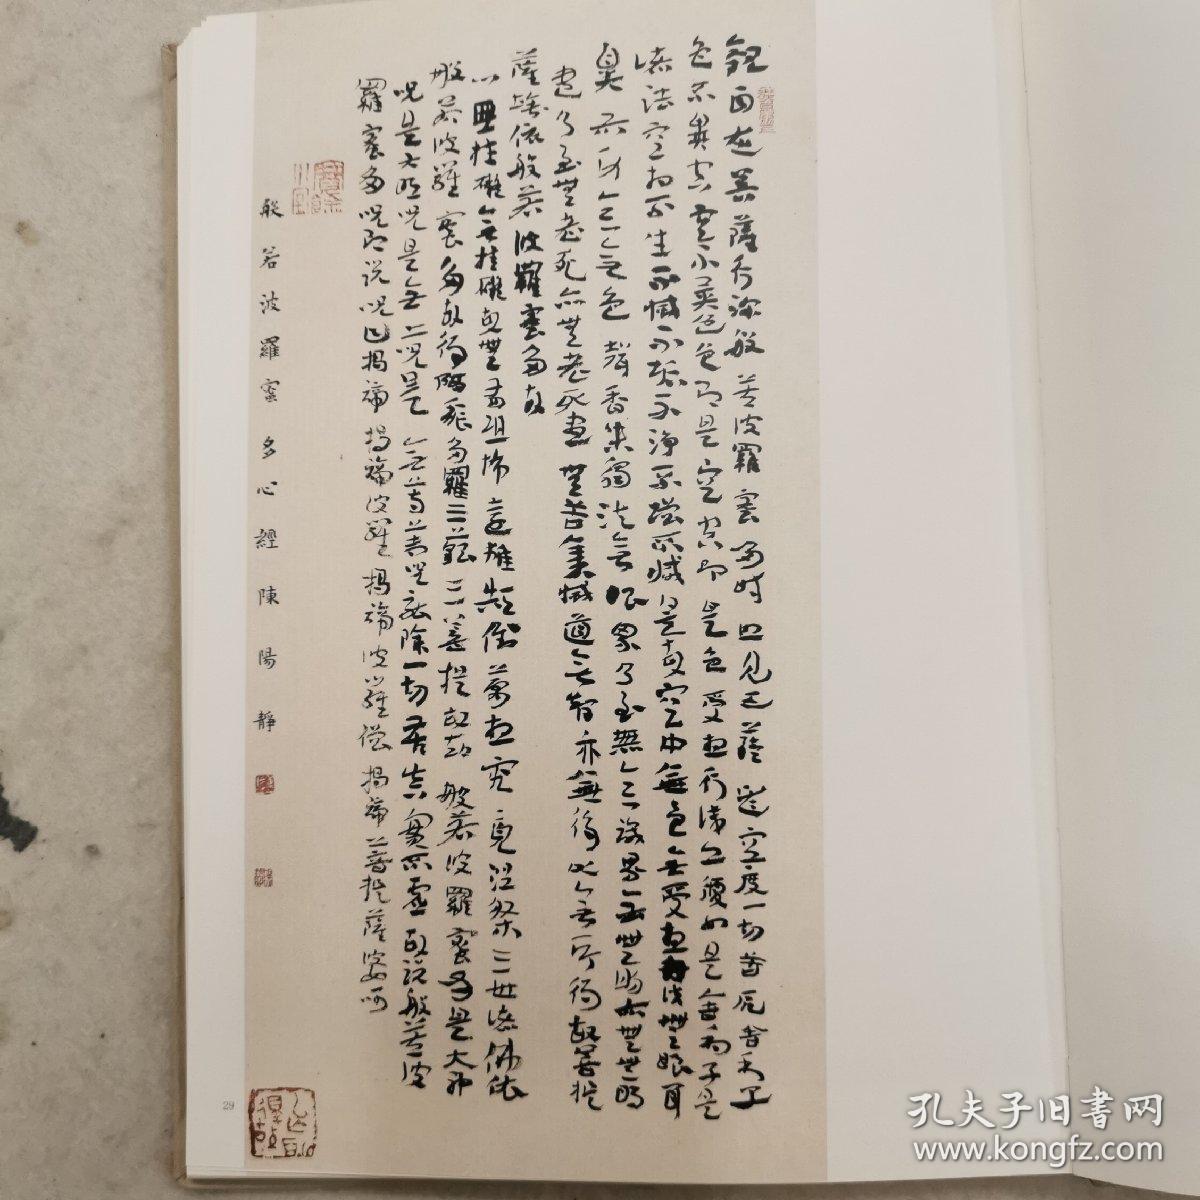 觀自在菩薩行深般若波羅蜜多時照見五蘊皆空度一切苦厄舍利子
色不異空空不異色色即是空空即是色受想行識亦復如是舍利子是
諸法空相不生不滅不垢不淨不增不減是故空中無色無受想行識無眼耳
鼻舌身意無色聲香味觸法無眼界乃至無意識界無無明亦無無明
盡乃至無老死亦無老死盡無苦集滅道無智亦無得以無所得故菩提
薩埵依般若波羅蜜多故
心罣礙無罣礙故無有恐怖遠離顛倒夢想究竟涅槃三世諸佛依
般若波羅蜜多故得阿耨多羅三藐三菩提故知般若波羅蜜多是大神
咒是大明咒是無上咒是無等等咒能除一切苦真實不虛故說般若波
羅蜜多咒即說咒曰揭諦揭諦波羅揭諦波羅僧揭諦菩提薩婆呵
般若波羅蜜多心經陳陽靜
29
孔夫子旧书网
www.kongfz.com